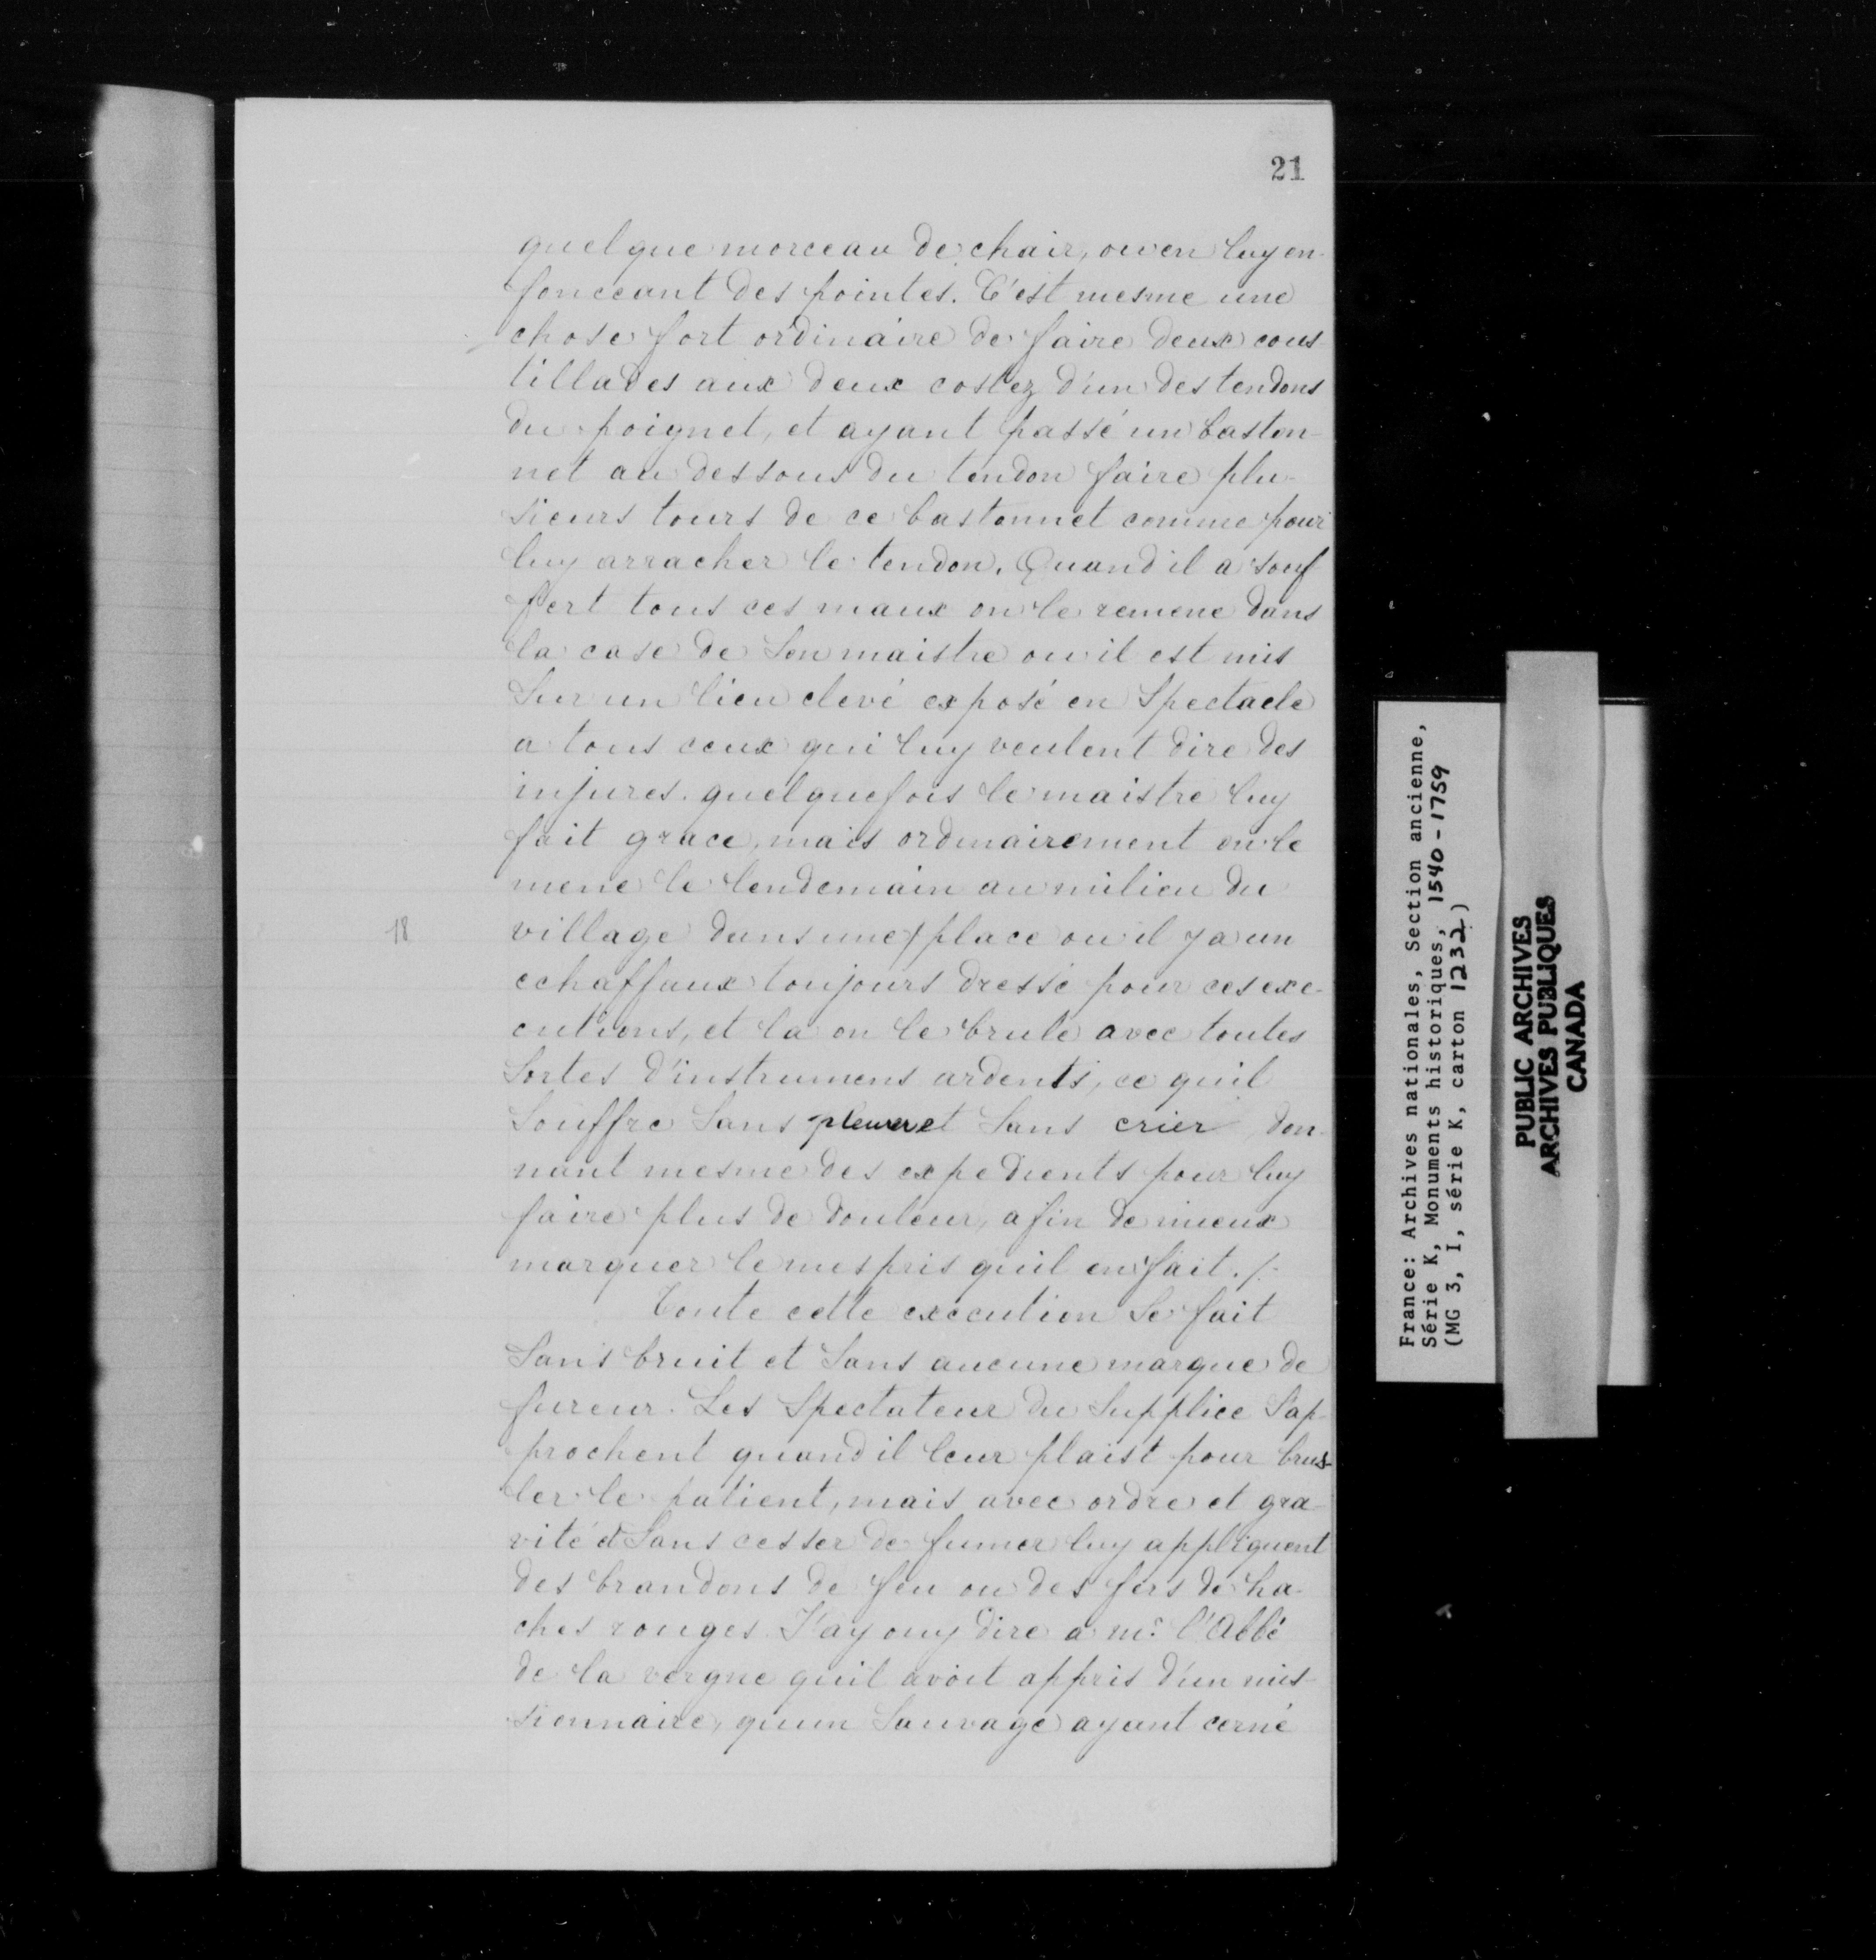 21
quelque morceau de chair, ou en luy en-
fonceant des pointes. C'est mesme une
chose fort ordinaire de faire deux cous
tillades aux deux costez d'un des tendons
du poignet, et ayant passé un baston-
net au dessous du tendon faire plu-
sieurs tours de ce bastonnet comme pour
luy arracher le tendon. Quand il a souf
fert tous ces maux on le remene dans
la case de Son maistre ou il est mis
Sur un lieu elevé exposé en Spectacle
a tous ceux qui luy veulent dire des
injures. quelquefois le maistre luy
fait grace, mais ordinairement on le
mene le lendemain au milieu du
18
village dans une/place ou il y a un
echaffaux toujours dressé pour ces exe-
cutions, et la on le brule avec toutes
Sortes d'instrumens ardents, ce quil
Souffre Sans pleurer et Sans crier don-
nant mesme des expedients pour luy
faire plus de douleur, afin de mieux
marquer le mespris quil en fait./.
Toute cette execution Se fait
Sans bruit et Sans aucune marque de
fureur. Les Spectateur du Supplice S'ap-
prochent quand il leur plaist pour brus-
ler le patient, mais avec ordre et gra-
vité et Sans cesser de fumer luy appliquent
des brandons de feu ou des fers de ha-
ches rouges. J'ay ouy dire a mr. l'Abbé
de la vergne quil avoit appris d'un mis-
sionnaire, quun Sauvage ayant cerné
France: Archives nationales, Section ancienne,
Série K, Monuments historiques, 1540-1759
(MG 3, I, série K, carton 1232)
PUBLIC ARCHIVES
ARCHIVES PUBLIQUES
CANADA